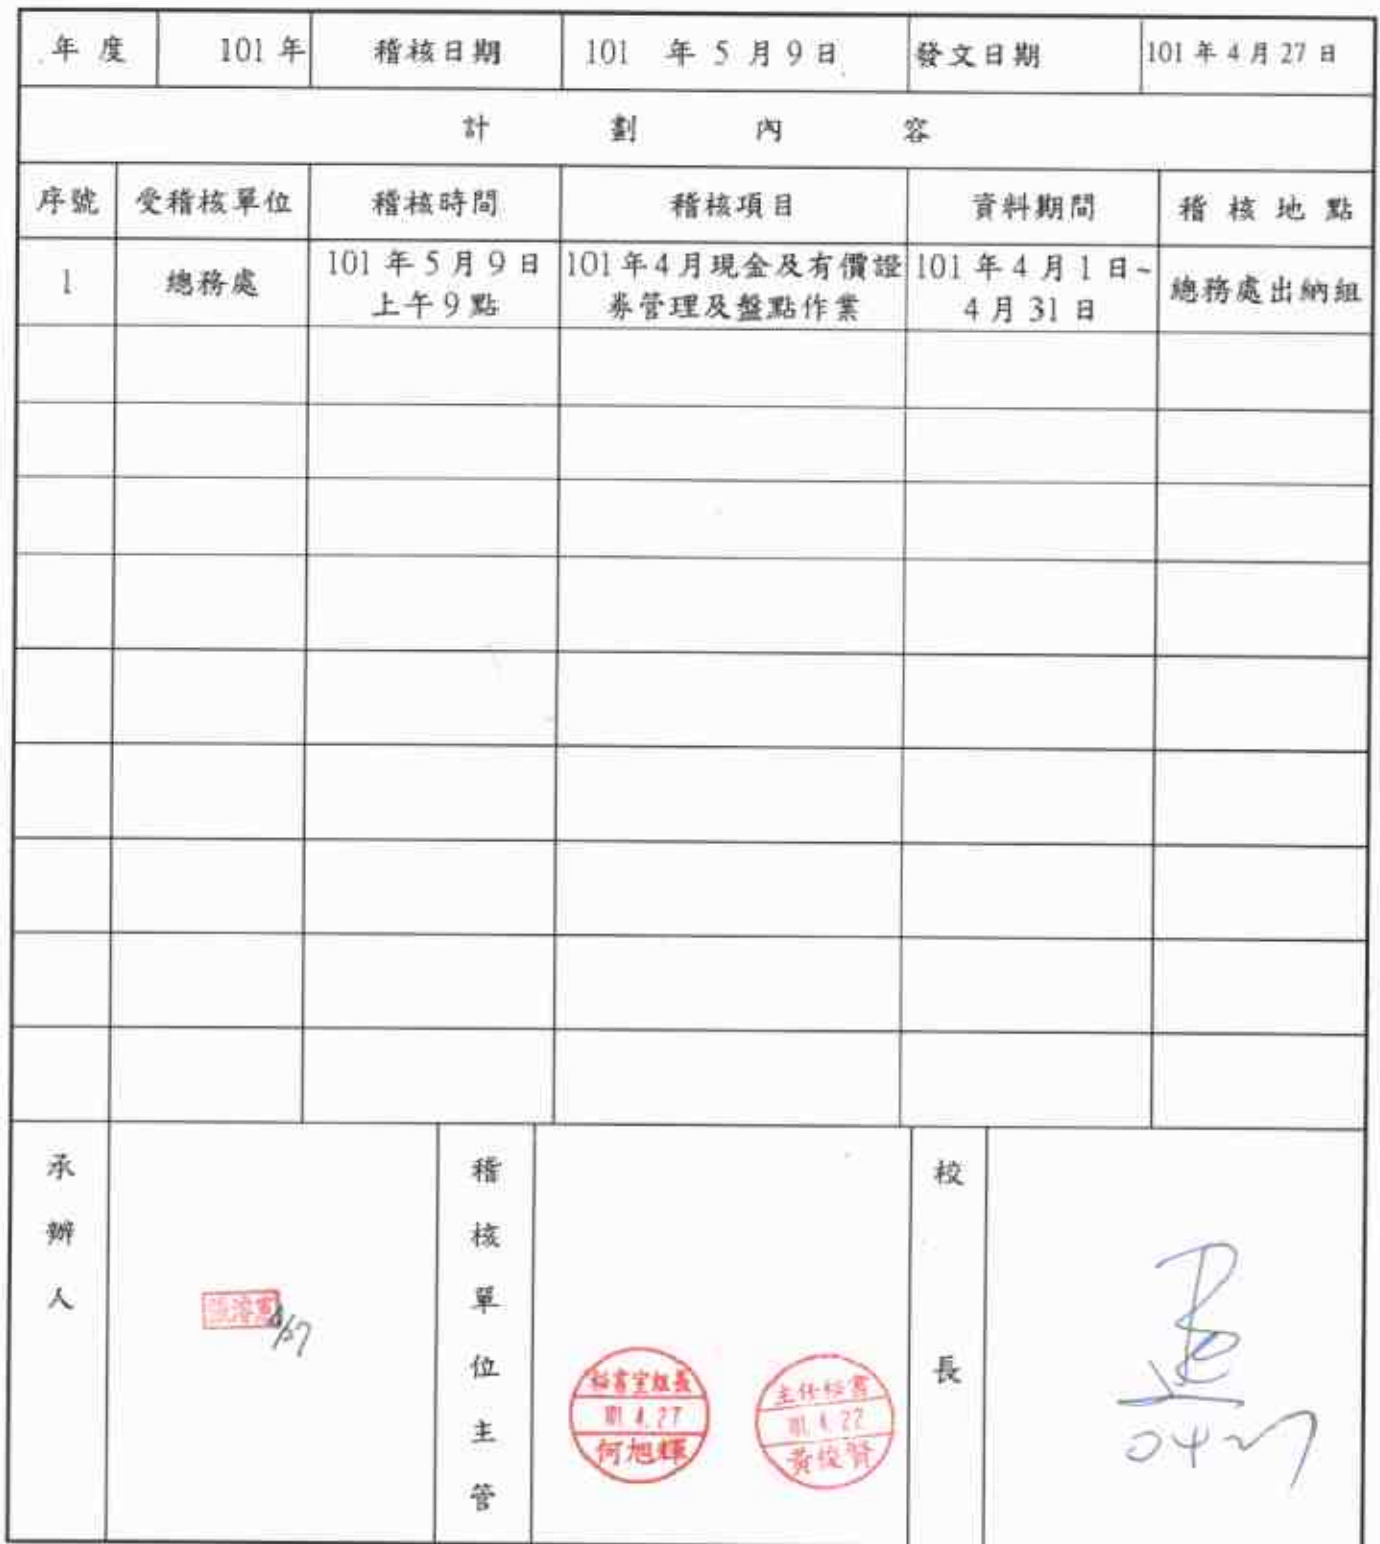 年 度 101 年 稽核日期 101 年 5 月 9 日 發文日期 101 年 4 月 27 日
計 劃 內 容
序號 受稽核單位 稽核時間 稽核項目 資料期間 稽 核 地 點
1 總務處 101 年 5 月 9 日 上午 9 點 101年4月現金及有價證券管理及盤點作業 101 年 4 月 1 日~ 4 月 31 日 總務處出納組
承辦人
4/27
稽核單位主管
秘書室組長
101.4.27
何旭輝
主任秘書
黃俊賢
校長
0427